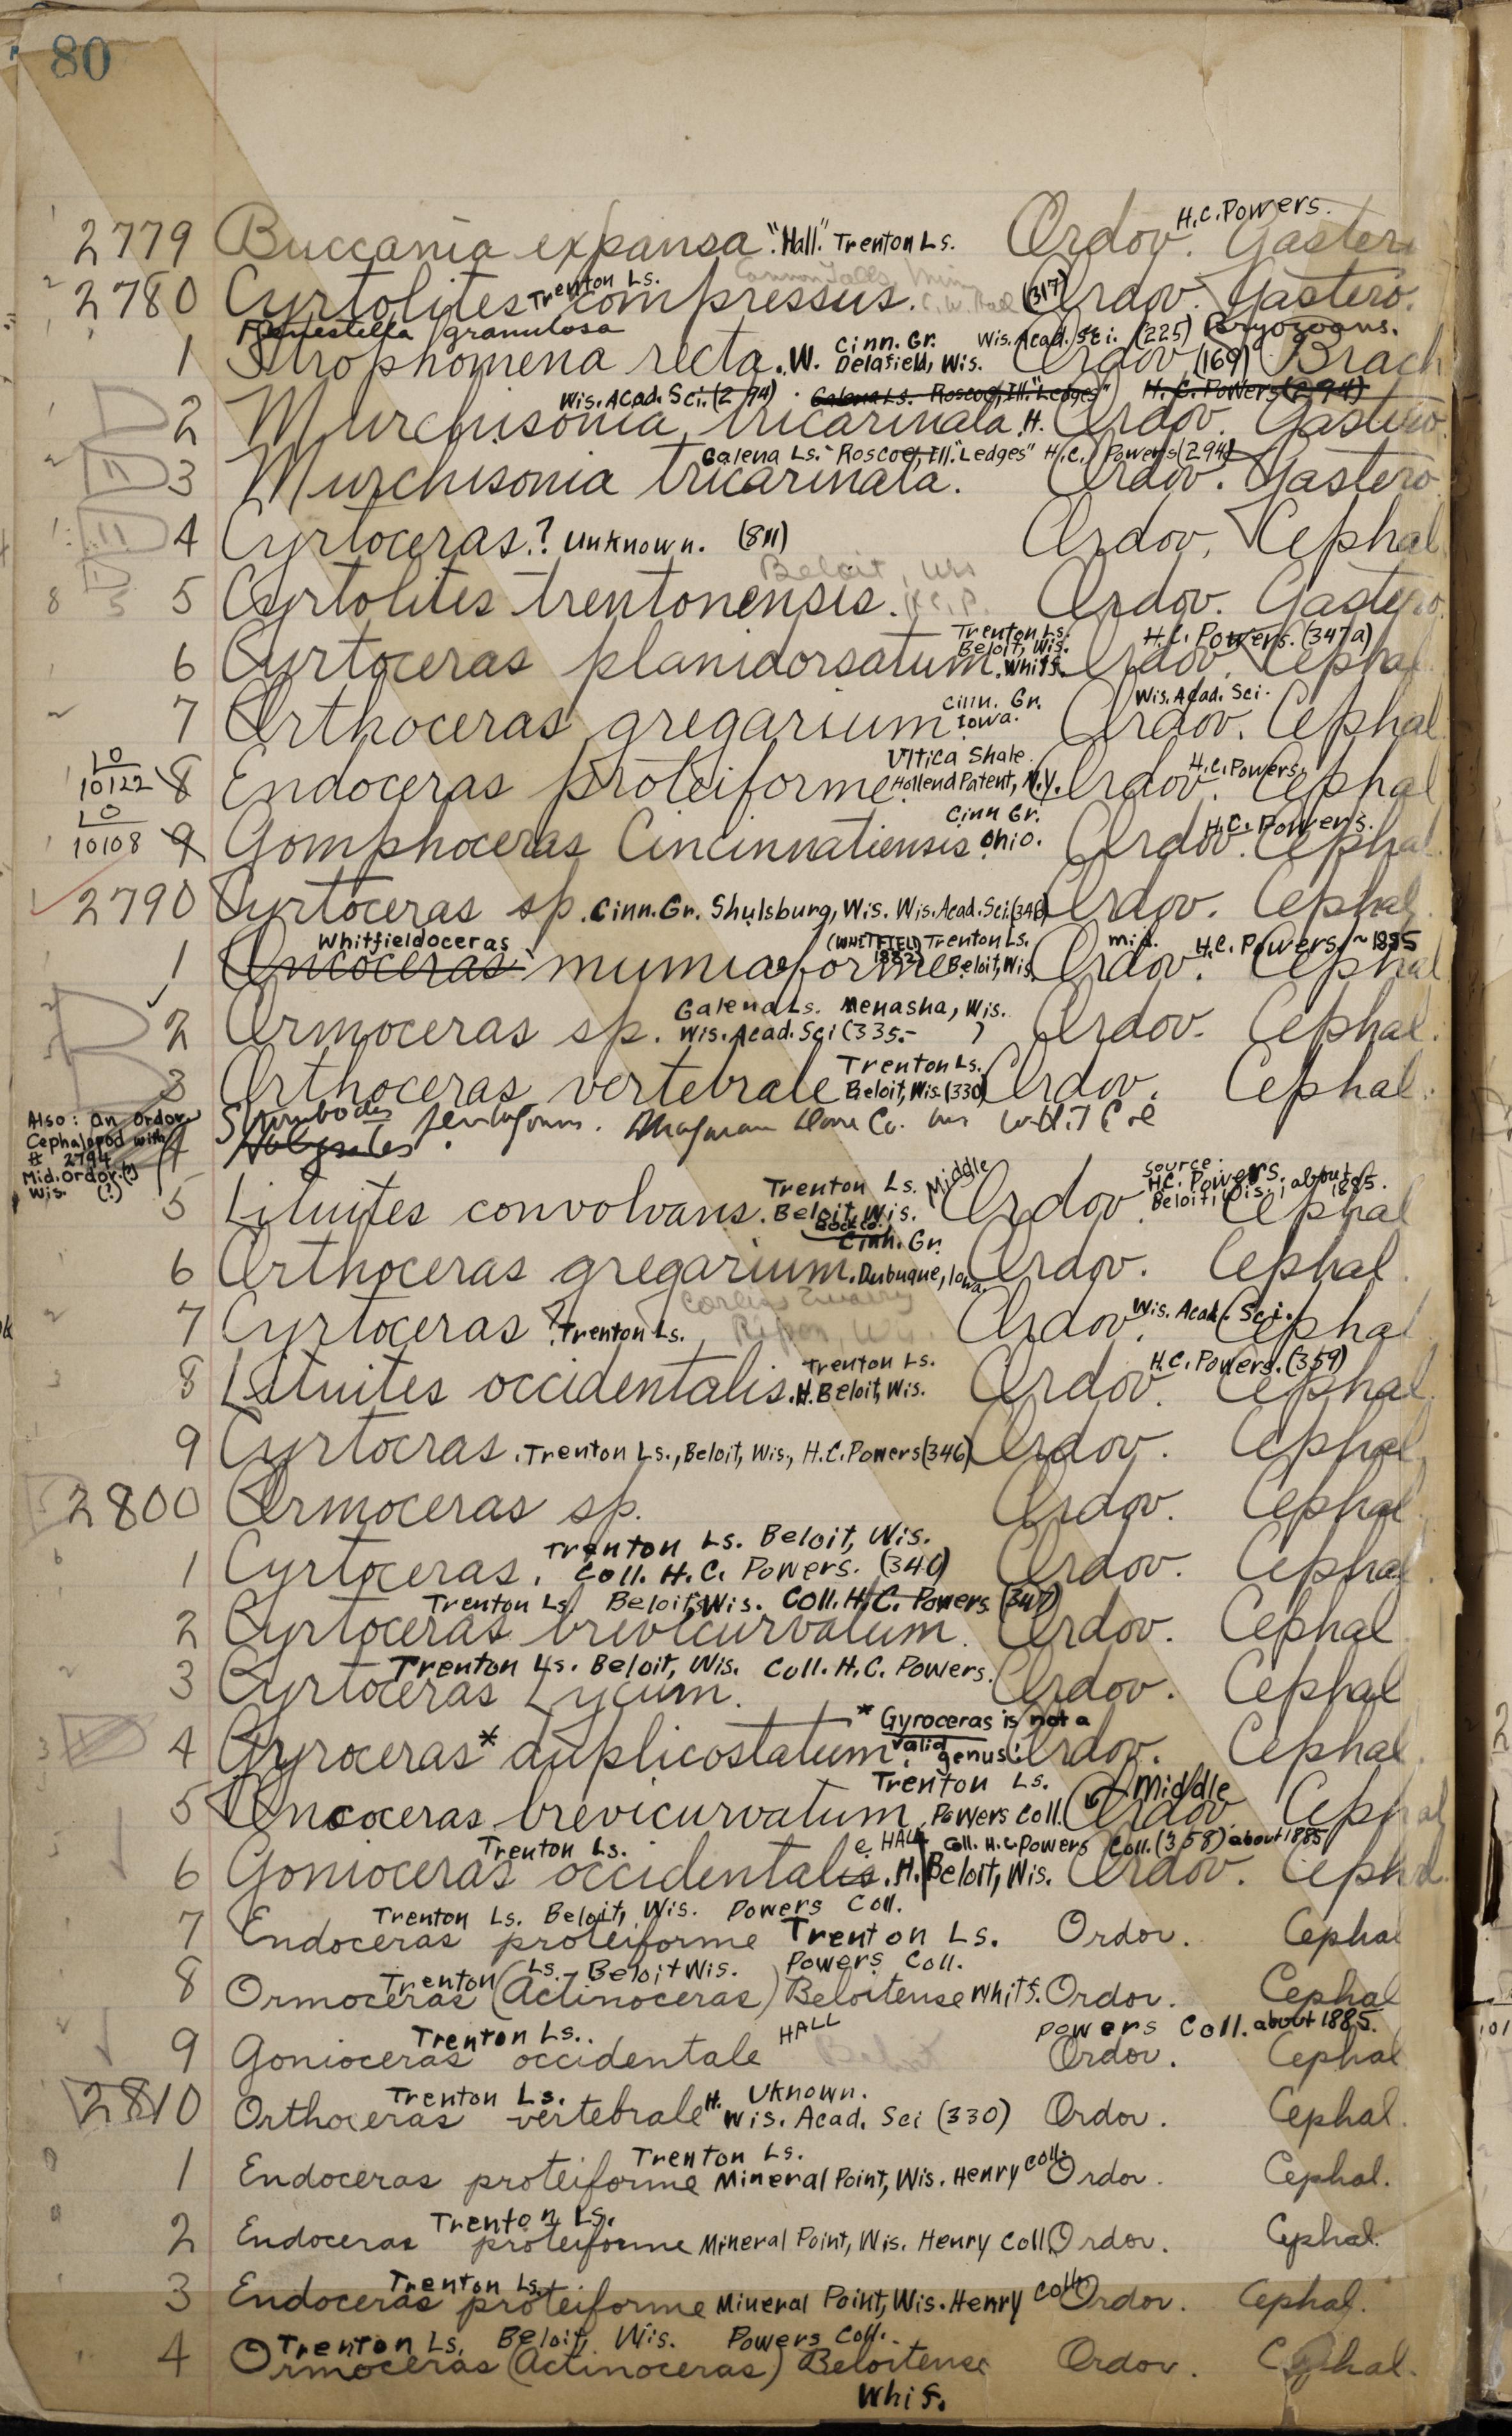 80
H.C. Powers.
2779 Buccania expansa. "Hall." Trenton Ls. Ordov. Gastero
Trenton Ls. Cannon Falls, Minn
2780 Cyrtolites compressus. C. W. Hall (317) Ordov. Gastero.
Fenestella granulosa Cinn. Gr. Wis. Acad. Sci. (225) Bryozoans.
1 Strophomena recta. W. Delafield, Wis. Ordov. (169) Brach
Wis. Acad. Sci. (294) Galena Ls. Roscoe, Ill. "Ledges" H. C. Powers (294)
2 Murchisonia tricarinata. H. Ordov. Gastero.
Galena Ls. Roscoe, Ill. "Ledges" H.C. Powers (294)
3 Murchisonia tricarinata. Ordov. Gastero
4 Cyrtoceras? unknown. (811) Ordov. Cephal
Beloit, Wis
5 Cyrtolites trentonensis. H.C.P. Ordov. Gastero.
Trenton Ls. H.C. Powers. (347a)
Beloit, Wis.
6 Cyrtoceras planidorsatum. Whitf. Ordov. Cephal.
Cinn. Gr. Wis. Acad. Sci.
7 Orthoceras gregarium Iowa. Ordov. Cephal
10 Utica Shale. H.C. Powers.
10122 8 Endoceras proteiforme. Hollend Patent, N.Y. Ordov. Cephal
10 Cinn Gr. H.C. Powers.
10108 9 Gomphoceras Cincinnatiensis Ohio. Ordov. Cephal.
2790 Cyrtoceras sp. Cinn. Gr. Shulsburg, Wis. Wis. Acad. Sci. (346) Ordov. Cephal.
Whitfieldoceras (WHITFIELD 1882) Trenton Ls. mid. H.C. Powers, ~1885
1 Oncoceras mumiaeforme Beloit, Wis. Ordov. Cephal
Galena Ls. Menasha, Wis.
2 Ormoceras sp. Wis. Acad. Sci (335.- ) Ordov. Cephal.
Trenton Ls.
3 Orthoceras vertebrale Beloit, Wis. (330) Ordov. Cephal.
Also: an Ordov
Cephalopod with
# 2794
Mid. Ordov. (?)
Wis. (?)
4 Dane Co. Wis
Halysites
Trenton Ls. Middle Source: H.C. Powers.
5 Lituites convolvans. Beloit, Wis. Ordov. Beloit, Wis., about 1885. Cephal
Rock Co.
Cinn. Gr.
6 Orthoceras gregarium. Dubuque, Iowa. Ordov. Cephal.
Wis. Acad. Sci.
7 Cyrtoceras? Trenton Ls. Ripon, Wis. Ordov. Cephal
Trenton Ls. H.C. Powers. (359)
8 Lituites occidentalis. H. Beloit, Wis. Ordov. Cephal.
9 Cyrtocras. Trenton Ls., Beloit, Wis., H.C. Powers (346) Ordov. Cephal.
2800 Ormoceras sp. Ordov. Cephal
Trenton Ls. Beloit, Wis.
1 Cyrtoceras. Coll. H.C. Powers. (340) Ordov. Cephal
Trenton Ls. Beloit, Wis. Coll. H.C. Powers. (347)
2 Cyrtoceras brevicurvatum. Ordov. Cephal
Trenton Ls. Beloit, Wis. Coll. H.C. Powers.
3 Cyrtoceras Lycum. Ordov. Cephal
* Gyroceras is not a
4 Gyroceras* duplicostatum. valid genus! Ordov. Cephal.
Trenton Ls. Middle
5 Oncoceras brevicurvatum, Powers Coll. Ordov Cephal
Trenton Ls. e HALL Coll. H.C. Powers Coll. (358) about 1885
6 Gonioceras occidentalis. H. Beloit, Wis. Ordov. Cephal.
Trenton Ls. Beloit, Wis. Powers Coll.
7 Endoceras proteiforme Trenton Ls. Ordov. Cephal
Trenton Ls. Beloit Wis. Powers Coll.
8 Ormoceras (Actinoceras) Beloitense Whitf. Ordov. Cephal
Trenton Ls.. HALL Powers Coll. about 1885.
9 Gonioceras occidentale Beloit Ordov. Cephal
Trenton Ls. Uknown.
2810 Orthoceras vertebrale H. Wis. Acad. Sci (330) Ordov. Cephal.
Trenton Ls.
1 Endoceras proteiforme Mineral Point, Wis. Henry Coll. Ordov. Cephal.
Trenton Ls.
2 Endoceras proteiforme Mineral Point, Wis. Henry Coll. Ordov. Cephal.
Trenton Ls.
3 Endoceras proteiforme Mineral Point, Wis. Henry Coll. Ordov. Cephal.
Trenton Ls. Beloit, Wis. Powers Coll.
4 Ormoceras (Actinoceras) Beloitense Ordov. Cephal.
Whif.